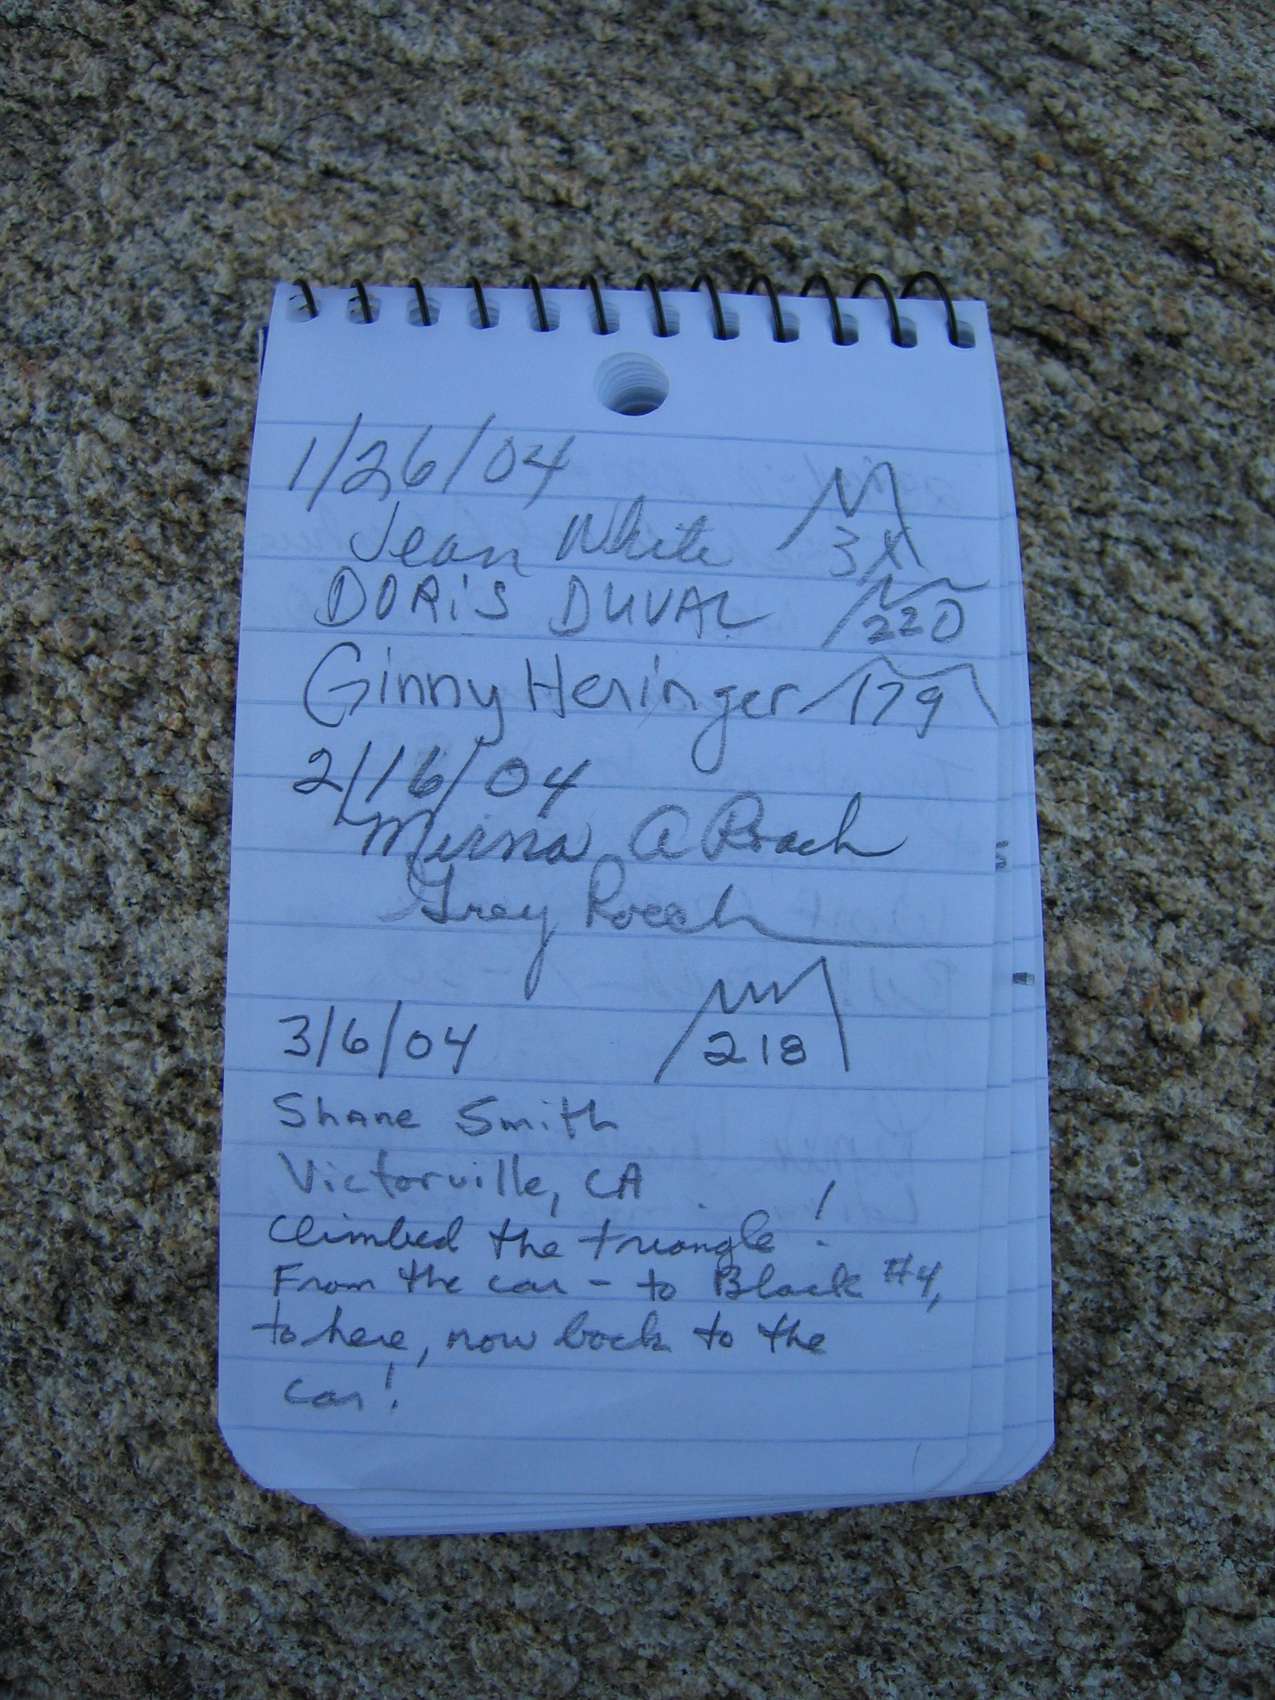 1/26/04
Jean White 3X
DORiS DUVAL 220
Ginny Heringer 179
2/16/04
Mirna A Roach
Greg Roach
3/6/04 218
Shane Smith
Victorville, CA
Climbed the triangle!
From the car - to Black #4,
to here, now back to the
car!